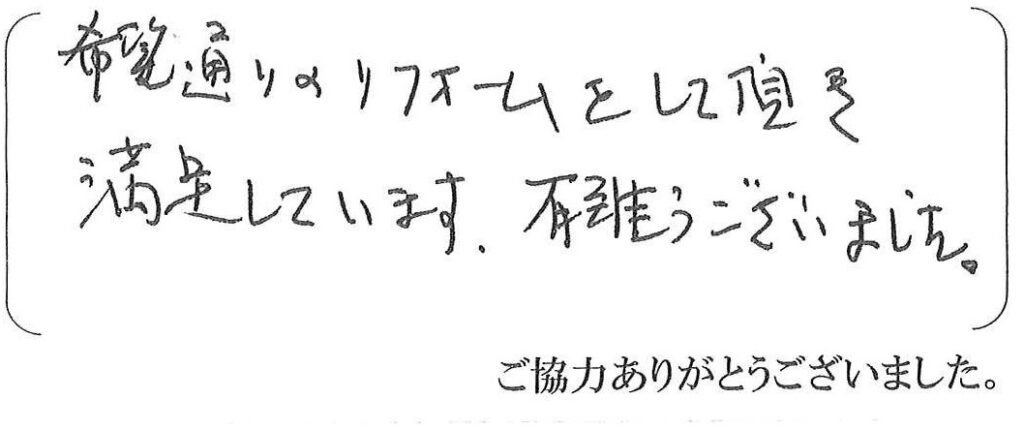 希望通りのリフォームをして頂き
満足しています. 有難うございました。
ご協力ありがとうございました。